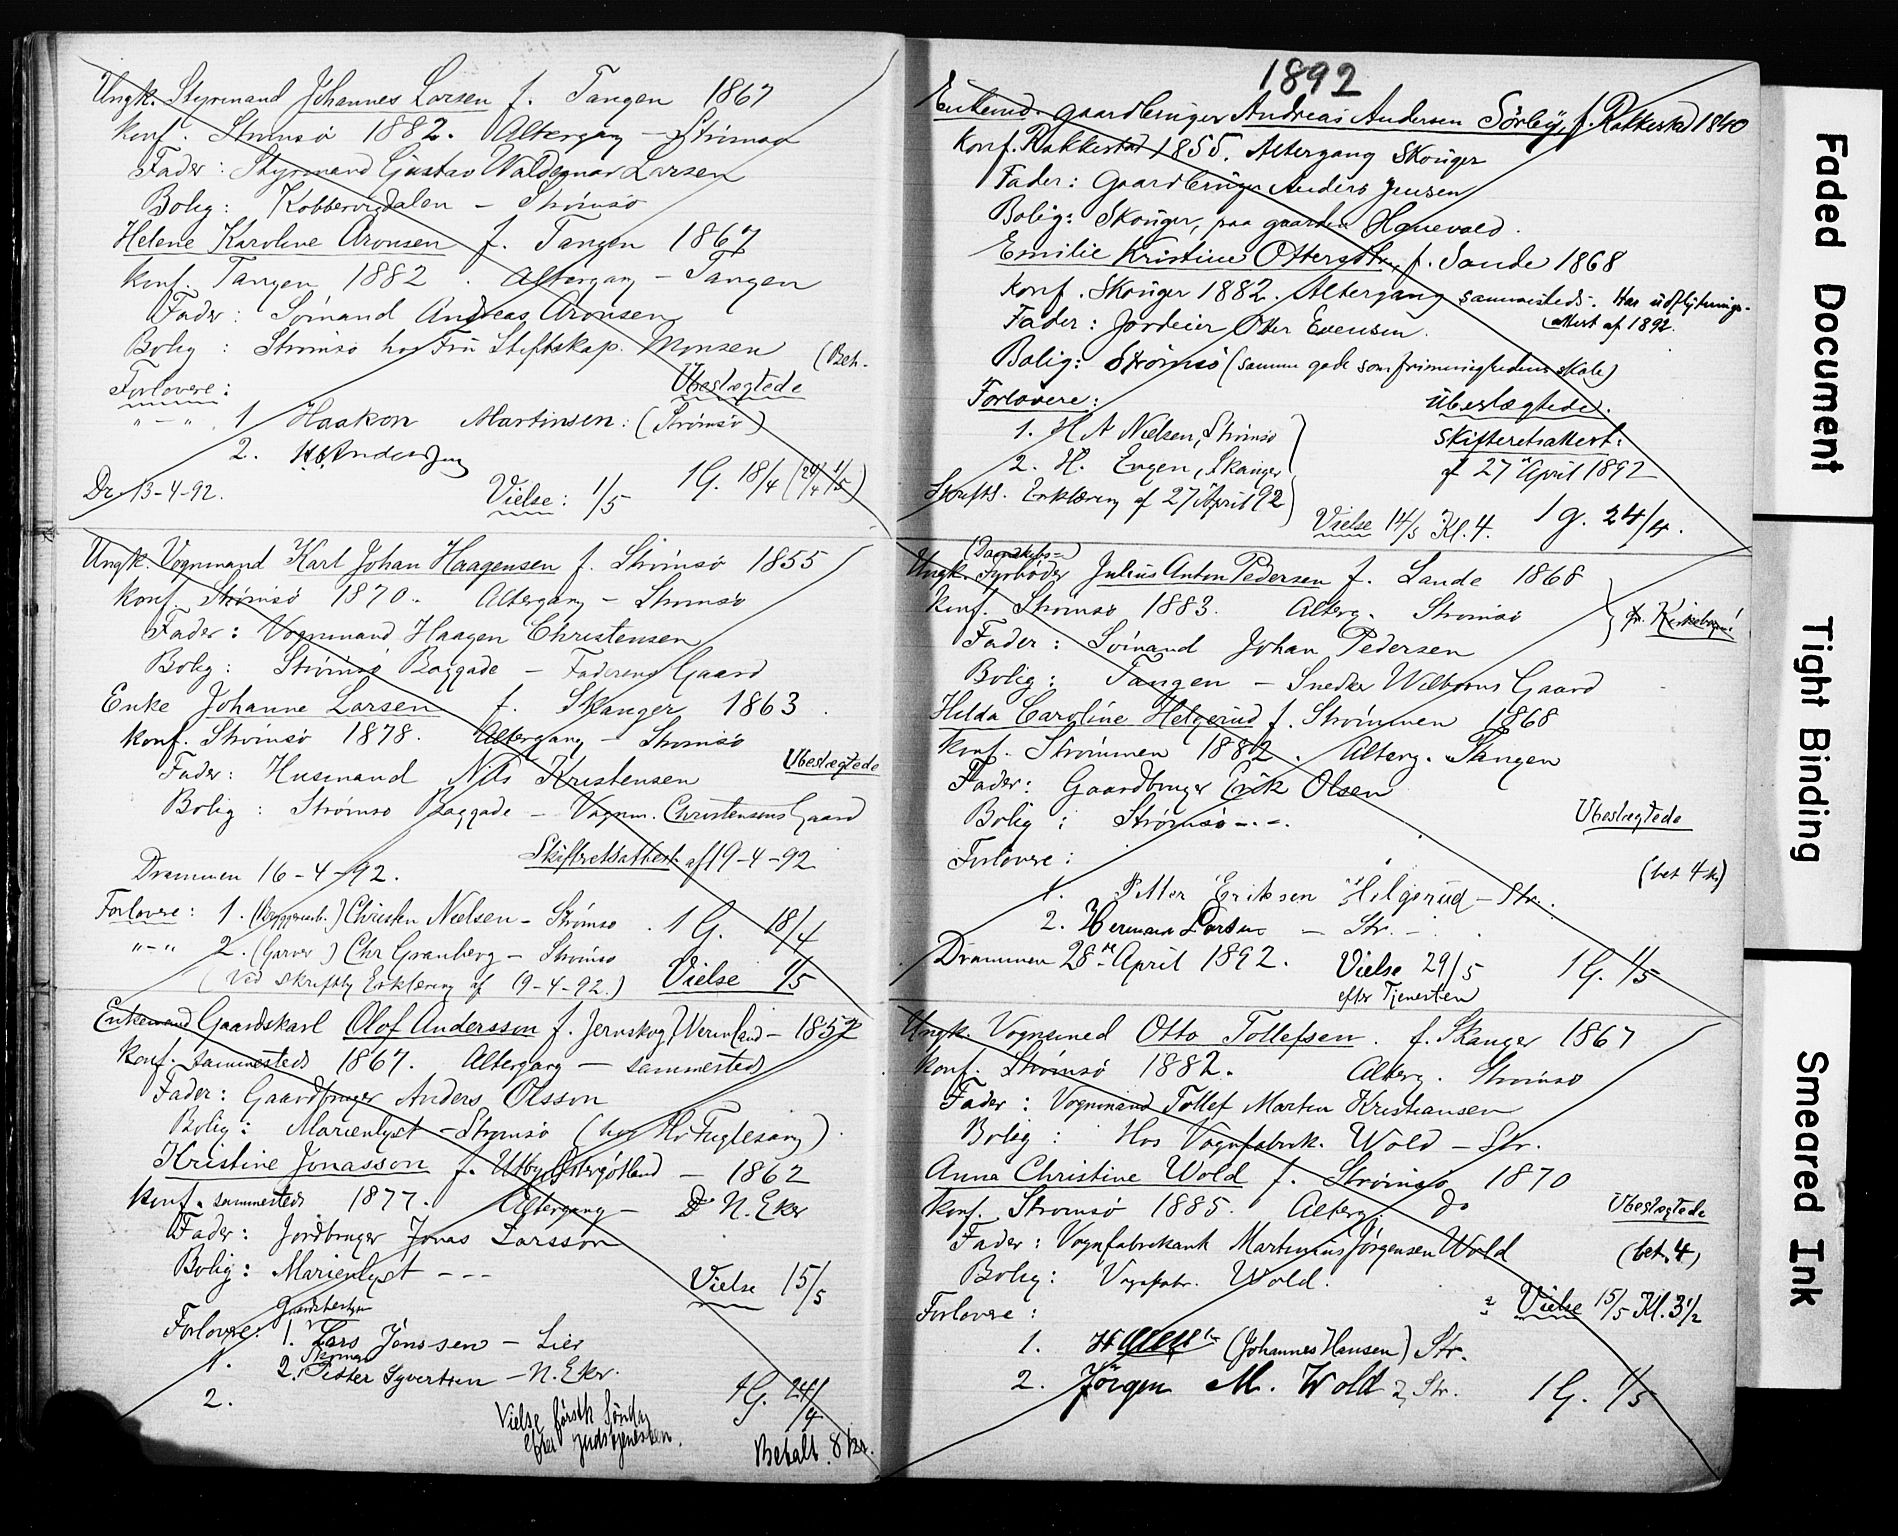 Ungk. Styrmand Johannes Larsen f. Tangen 1867
Konf. Strømsø 1882. Altergang - Strømsø
Fader: Styrmand Gustav Waldemar Larsen
Bolig: Kobbervigdalen - Strømsø
Helene Karoline Aronsen f. Tangen 1867
Konf. Tangen 1882. Altergang - Tangen
Fader: Sømand Andreas Aronsen
Bolig: Strømsø hos Fru Stiftskap. Monsen (Bet.
Forlovere: Ubeslægtede
" - " 1 Haakon Martinsen: (Strømsø)
2.
Dr. 13-4-92. Vielse: 1/5 1 G. 18/4 (24/4 1/5)
Ungk. Vognmand Karl Johan Haagensen f. Strømsø 1855
Konf. Strømsø 1870. Altergang - Strømsø
Fader: Vognmand Haagen Christensen
Bolig: Strømsø Baggade - Faderens Gaard
Enke Johanne Larsen f. Skauger 1863
Konf. Strømsø 1878. Altergang - Strømsø
Fader: Husmand Nils Kristensen Ubeslægtede
Bolig: Strømsø Baggade - Vognm. Christensens Gaard
Skifteretsattest af 19-4-92
Drammen 16-4-92.
Forlovere: 1. (Byggmest.) Christen Nielsen - Strømsø. 1 G. 18/4
" - " 2. (Garver) Chr Granberg - Strømsø
(Ved skriftlig Erklæring af 19-4-92.) Vielse 1/5
Enkemand Gaardskarl Olof Andersson f. Jernskog, Wermland - 1852
Konf. sammesteds 1867. Altergang - sammesteds
Fader: Gaardbruger Anders Olsson
Bolig: Marienlyst - Strømsø (hos Hr Fuglesang).
Kristine Jonasson f. Utby, Østergötland - 1862
Konf. sammesteds 1877. Altergang - Do N. Eker
Fader: Jordbruger Jonas Larsson
Bolig: Marienlyst - - -
Vielse 15/5
Gaardbestyr
Forlovere: 1. Lars Jonssen - Lier
1. 2. Petter Syvertsen - N. Eker.
2. 1 G. 24/4
Vielse første Søndag
efter Gudstjenesten.
Betalt. 8 kr.
1892
Enkemd. gaardbruger Andreas Andersen Sørby, f. Rakkestad 1840
Konf. Rakkestad 1855. Altergang Skouger
Fader: Gaardbruger Anders Jensen
Bolig: Skouger, paa gaarden Hanevold.
Emilie Kristine Ottersdtr, f. Sande 1868
Konf. Skouger 1882. Altergang sammesteds. Har udflytnings-
attest af 1892.
Fader: Jordeier Otter Evensen.
Bolig: Strømsø (samme gade som frimenighedens skole)
Forlovere: Ubeslægtede.
1. H A Nielsen, Strømsø Skifteretsattest.
2. H. Engen, Skauger af 27 April 1892
Skriftl. Erklæring af 27 April 92
Vielse 14/5 Kl. 4. 1 G. 24/4.
(Dampskibs=)
Ungk. Fyrbøder Julius Anton Pedersen f. Sande 1868
Konf. Strømsø 1883. Alterg. Strømsø
Fader: Sømand Johan Pedersen
Bolig: Tangen - Snedker Wilborns Gaard
Hilda Caroline Helgerud f. Strømmen 1868
Konf. Strømmen 1882. Alterg. Tangen
Fader: Gaardbruger Erik Olsen
Bolig: Strømsø - . - . Ubeslægtede
Forlovere: (bet 4 kr)
1. Petter Eriksen Helgerud - Str.
2. Herman Larsen - Str. -
Drammen 28de April 1892. Vielse 29/5 1 G. 1/5
efter Tjenesten
Ungk. Vognsmed Otto Tollefsen. f. Skauger 1867
Konf. Strømsø 1882. Alterg. Strømsø
Fader: Vognmand Tollef Martin Kristiansen
Bolig: Hos Vognfabrik. Wold - Str.
Anna Christine Wold f. Strømsø 1870
Konf. Strømsø 1885. Alterg. Do Ubeslægtede
Fader: Vognfabrikant Martinius Jørgensen Wold (bet. 4)
Bolig: Vognfabr. Wold.
Forlovere: Vielse 15/5 Kl. 3 1/2
1. (Johannes Hansen) Str.
2. Jørgen M. Wold, Str. 1 G. 1/5
Faded Document
Tight Binding
Smeared Ink